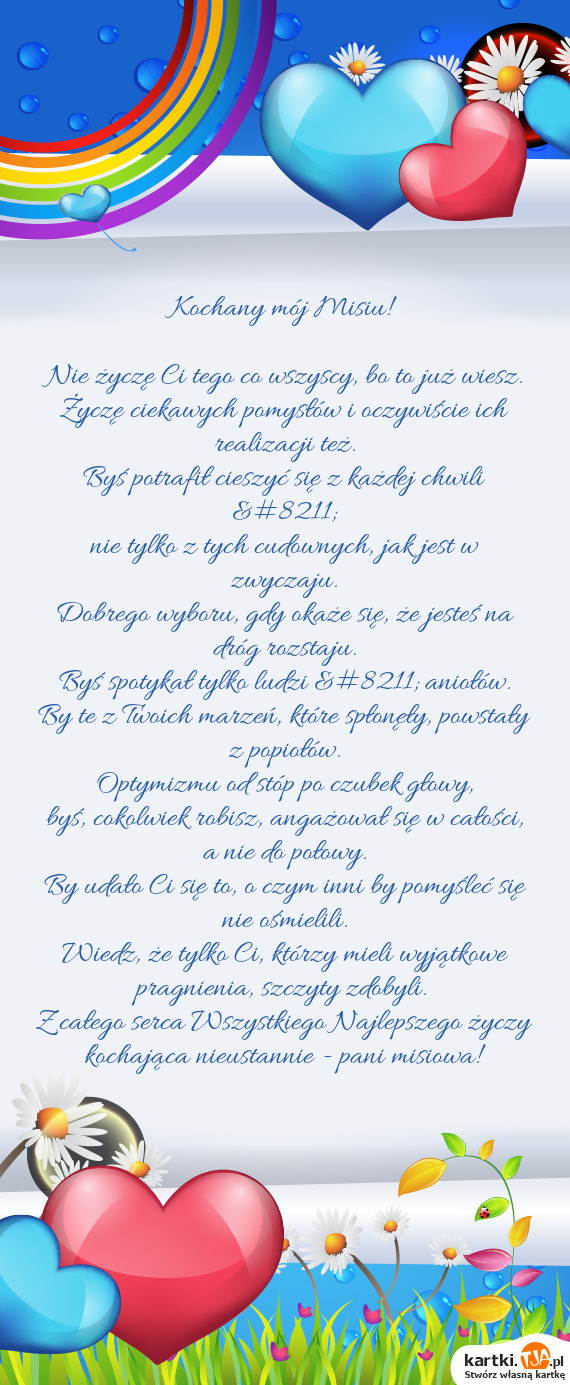 Kochany mój Misiu!
Nie życzę Ci tego co wszyscy, bo to już wiesz.
Życzę ciekawych pomysłów i oczywiście ich
realizacji też.
Byś potrafił cieszyć się z każdej chwili
&#8211;
nie tylko z tych cudownych, jak jest w
zwyczaju.
Dobrego wyboru, gdy okaże się, że jesteś na
dróg rozstaju.
Byś spotykał tylko ludzi &#8211; aniołów.
By te z Twoich marzeń, które spłonęły, powstały
z popiołów.
Optymizmu od stóp po czubek głowy,
byś, cokolwiek robisz, angażował się w całości,
a nie do połowy.
By udało Ci się to, o czym inni by pomyśleć się
nie ośmielili.
Wiedz, że tylko Ci, którzy mieli wyjątkowe
pragnienia, szczyty zdobyli.
Z całego serca Wszystkiego Najlepszego życzy
kochająca nieustannie - pani misiowa!
kartki.TJA.pl
Stwórz własną kartkę